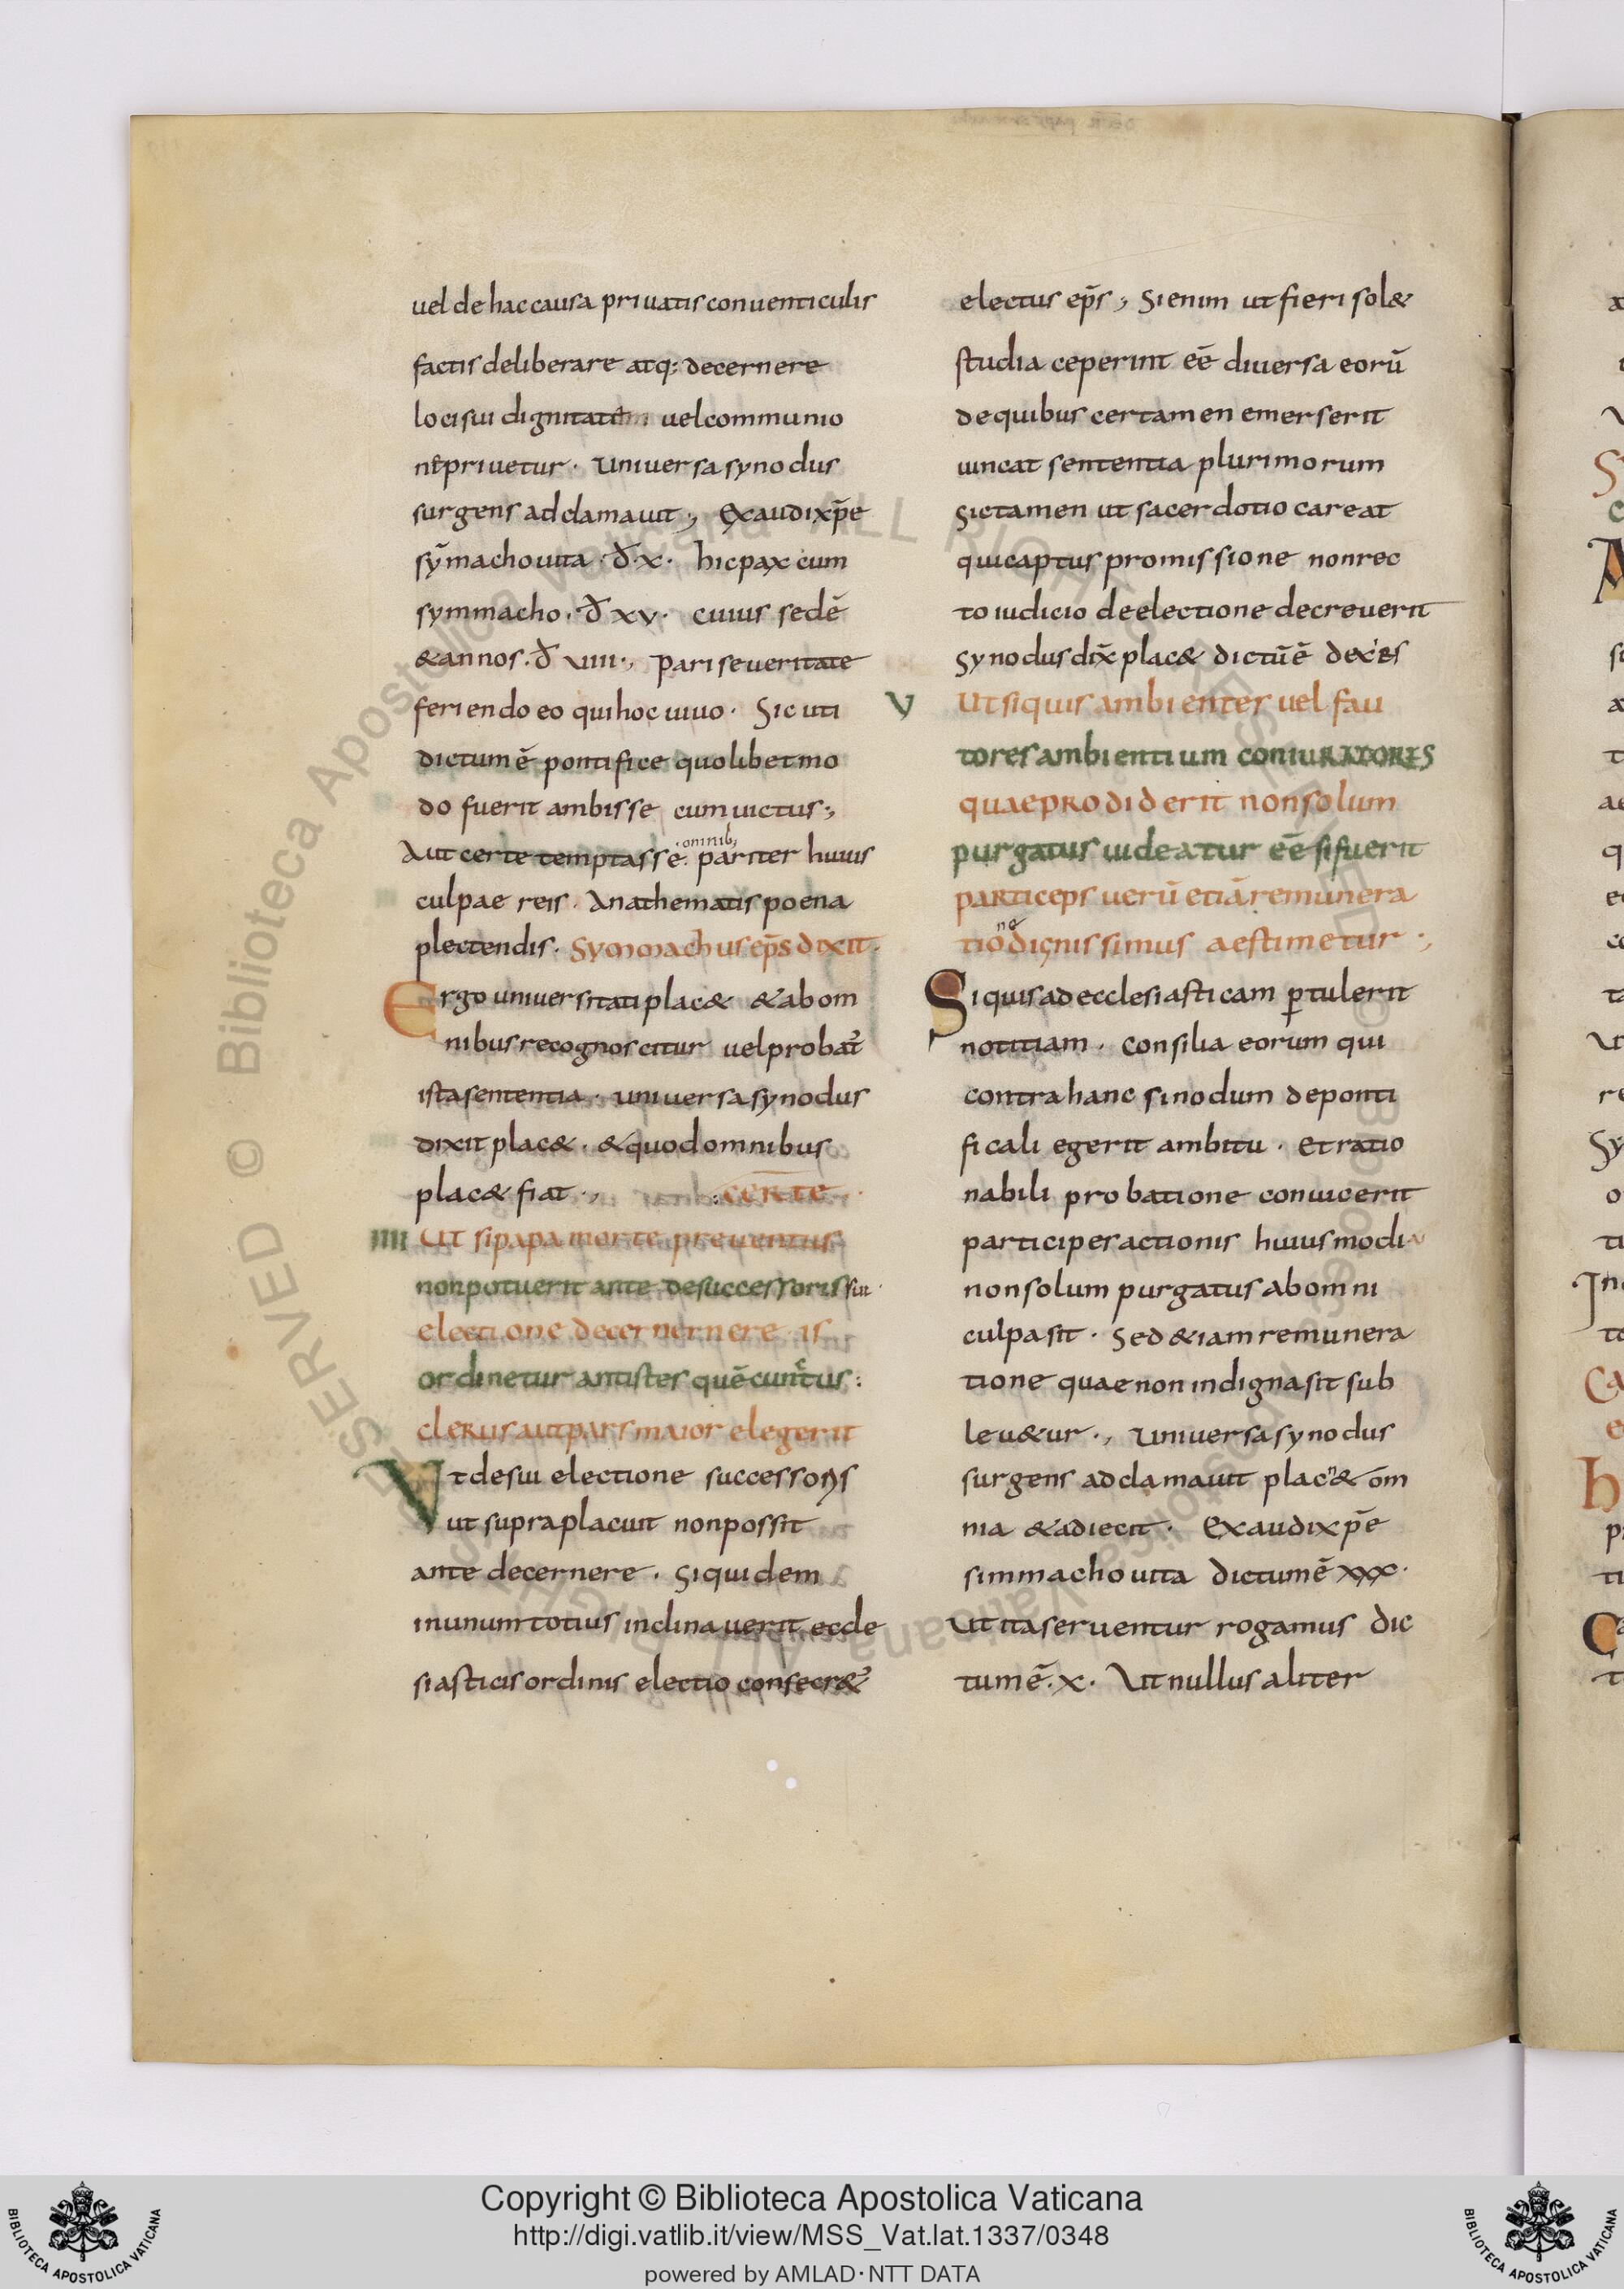 uel de hac causa priuatis conuenticulis
factis deliberare atq: decernere
loci sui dignitatē uel communio
priuetur · Uniuersa synodus
surgens adclamauit ; Exaudi xp̄e
sȳmacho uita · d̄ · x · hic pax cum
symmacho · d̄ xv · cuius sedē
& annos · d̄ uiiii ·, Pari seueritate
feriendo eo qui hoc uiuo · Sic uti
dictum ē pontifice quolibet mo
do fuerit ambisse cum uictus ;,
Aut certe temptasse · omnib; pariter huius
culpae reis · Anathematis poena
plectendis · Symmachus ep̄s dixit ·
Ergo uniuersitati plac& & ab om
nibus recognoscitur uel probat᷑
ista sententia · uniuersa synodus
dixit plac& · & quod omnibus
plac& fiat ·, : CERTE ·
IIII Ut si papa morte preuentus
non potuerit ante de successoris sui ·
electione decernernere is
ordinetur antistes quē cunctus :
clerus aut pars maior elegerit
Ut de sui electione successoris
ut supra placuit non possit
ante decernere · Siquidem
in unum totius inclinauerit eccle
siasticis ordinis electio consecr&᷑
electus ep̄s ; Si enim ut fieri sol&
studia ceperint eē diuersa eorū
de quibus certamen emerserit
uincat sententia plurimorum
sic tamen ut sacerdotio careat
qui captus promissione non rec
to iudicio de electione decreuerit
Synodus dix̄ plac& dictū ē
V Ut si quis ambienter uel fau
tores ambientium coniuRATORES
quae PRodiderit non solum
purgatus uideatur eē si fuerit
particeps uerū etiā remunera
tionē dignissimus aestimetur ·,
Si quis ad ecclesiasticam ꝑtulerit
notitiam · Consilia eorum qui
contra hanc sinodum de ponti
ficali egerit ambitu · Et ratio
nabili probatione conuicerit
particiперactionis huiusmodi
non solum purgatus ab omni
culpa sit · Sed &iam remunera
tione quae non indigna sit sub
leu&ur ·, Uniuersa synodus
surgens adclamauit plac&ⁿ om̄
nia & adiecit · Exaudi xp̄e
simmacho uita dictum ē xxx ·
Ut ita seruentur rogamus dic
tum ē · x · Ut nullus aliter
Copyright © Biblioteca Apostolica Vaticana
http://digi.vatlib.it/view/MSS_Vat.lat.1337/0348
powered by AMLAD·NTT DATA
BIBLIOTECA APOSTOLICA VATICANA
BIBLIOTECA APOSTOLICA VATICANA